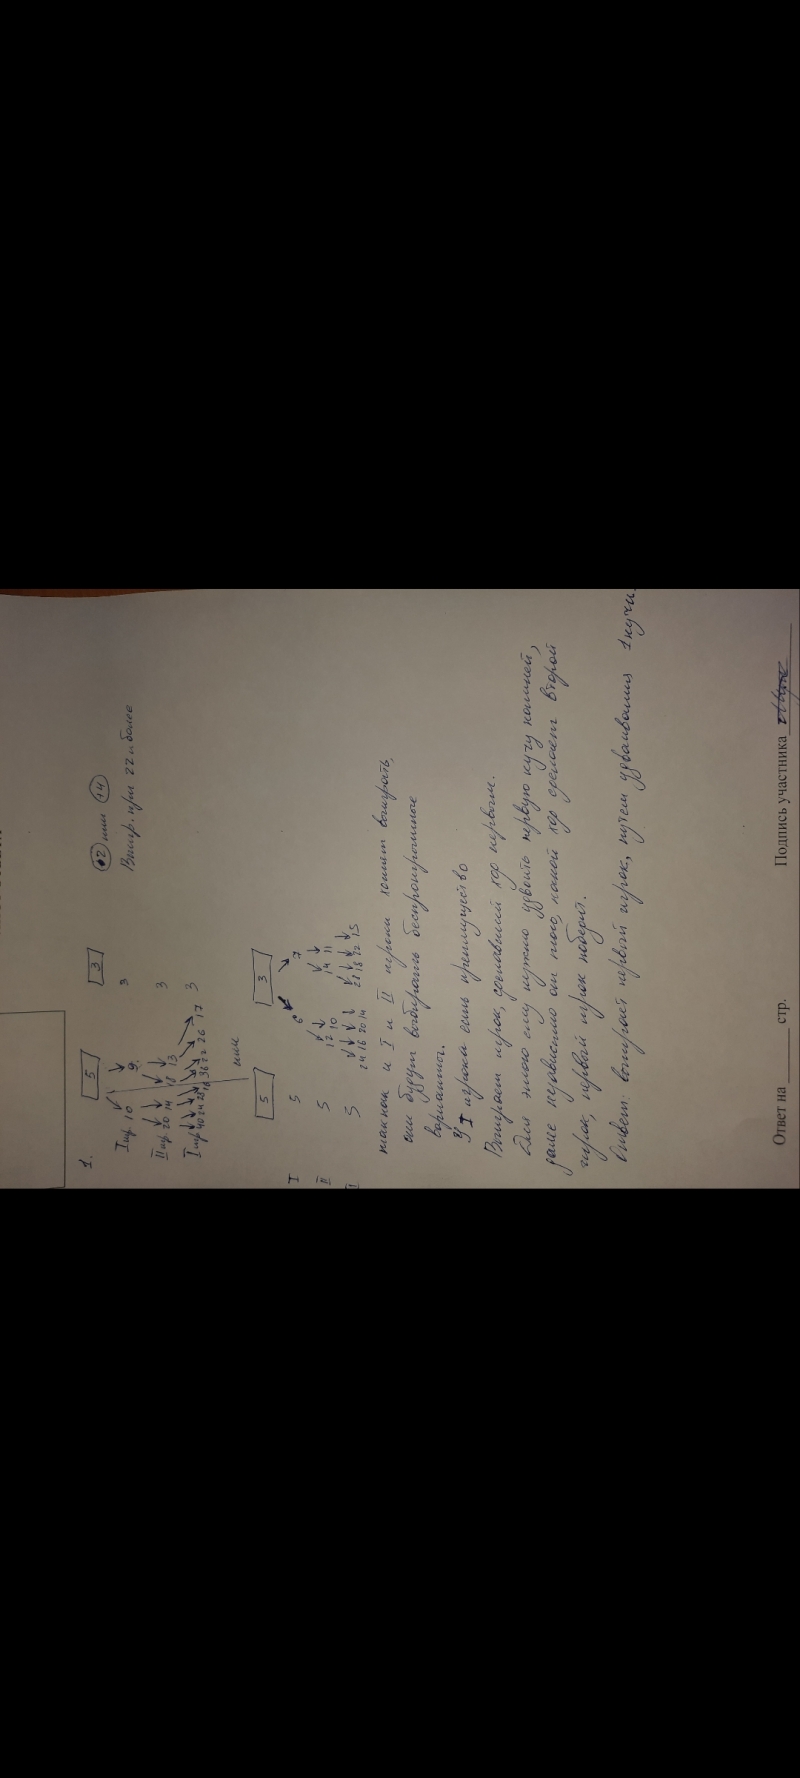 1.
5 3 ·2 или +4
I игр. 10 9. 3 Выигр. при 22 и более
II игр 20 14 18 13 3
I игр 40 24 28 18 36 22 26 17 3
или
5 3
I 5 6 7
II 5 12 10 14 11
I 5 24 16 20 14 28 18 22 15
так как и I и II игроки хотят выиграть,
они будут выбирать беспроигрышные
варианты.
У I игрока есть преимущество
Выиграет игрок, сделавший ход первым.
Для этого ему нужно удвоить первую кучу камней,
далее независимо от того, какой ход сделает второй
игрок, первый игрок победит.
Ответ: выиграет первый игрок, путем удваивания 1 кучи.
Ответ на ______ стр. Подпись участника